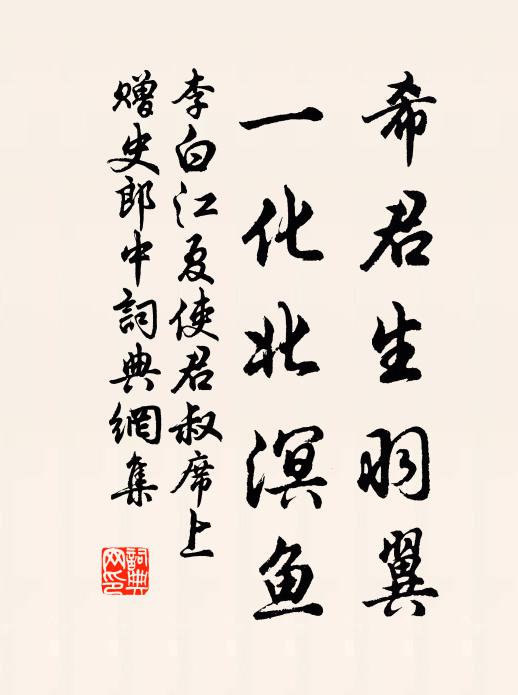 希君生羽翼
一化北溟鱼
李白江夏使君叔席上
赠史郎中詞典網集
詞典
网印